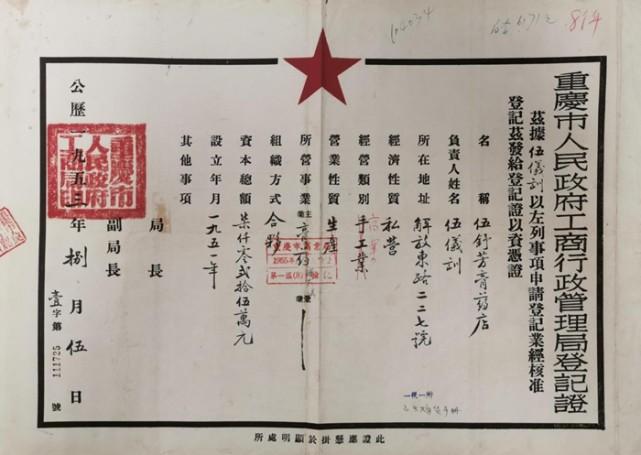 104034
814
重慶市人民政府工商行政管理局登記證
茲據伍儀訓以左列事項申請登記業經核准
登記茲發給登記證以資憑證
名稱 伍舒芳膏药店
負責人姓名 伍儀訓
所在地址 解放東路二二七號
經濟性質 私營
經營類別 手工業
營業性質 生產
所營事業 主業 膏药 兼業
組織方式 合夥
資本總額 柒仟叁弍拾伍萬元
設立年月 一九五一年
其他事項
局長
副局長
公歷一九五三年捌月伍日
壹字第111725號
重慶市人民政府工商局
此證應懸掛於顯明處所